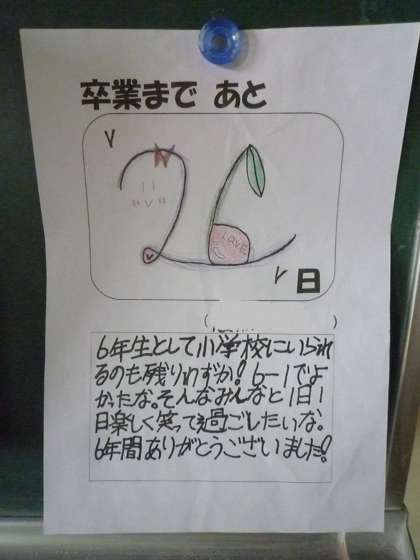 卒業まで あと
26
LOVE
日
( )
6年生として小学校にいられ
るのも残りわずか! 6-1でよ
かたな。そんなみんなと1日1
日楽しく笑って過ごしたいな。
6年間ありがとうございました!